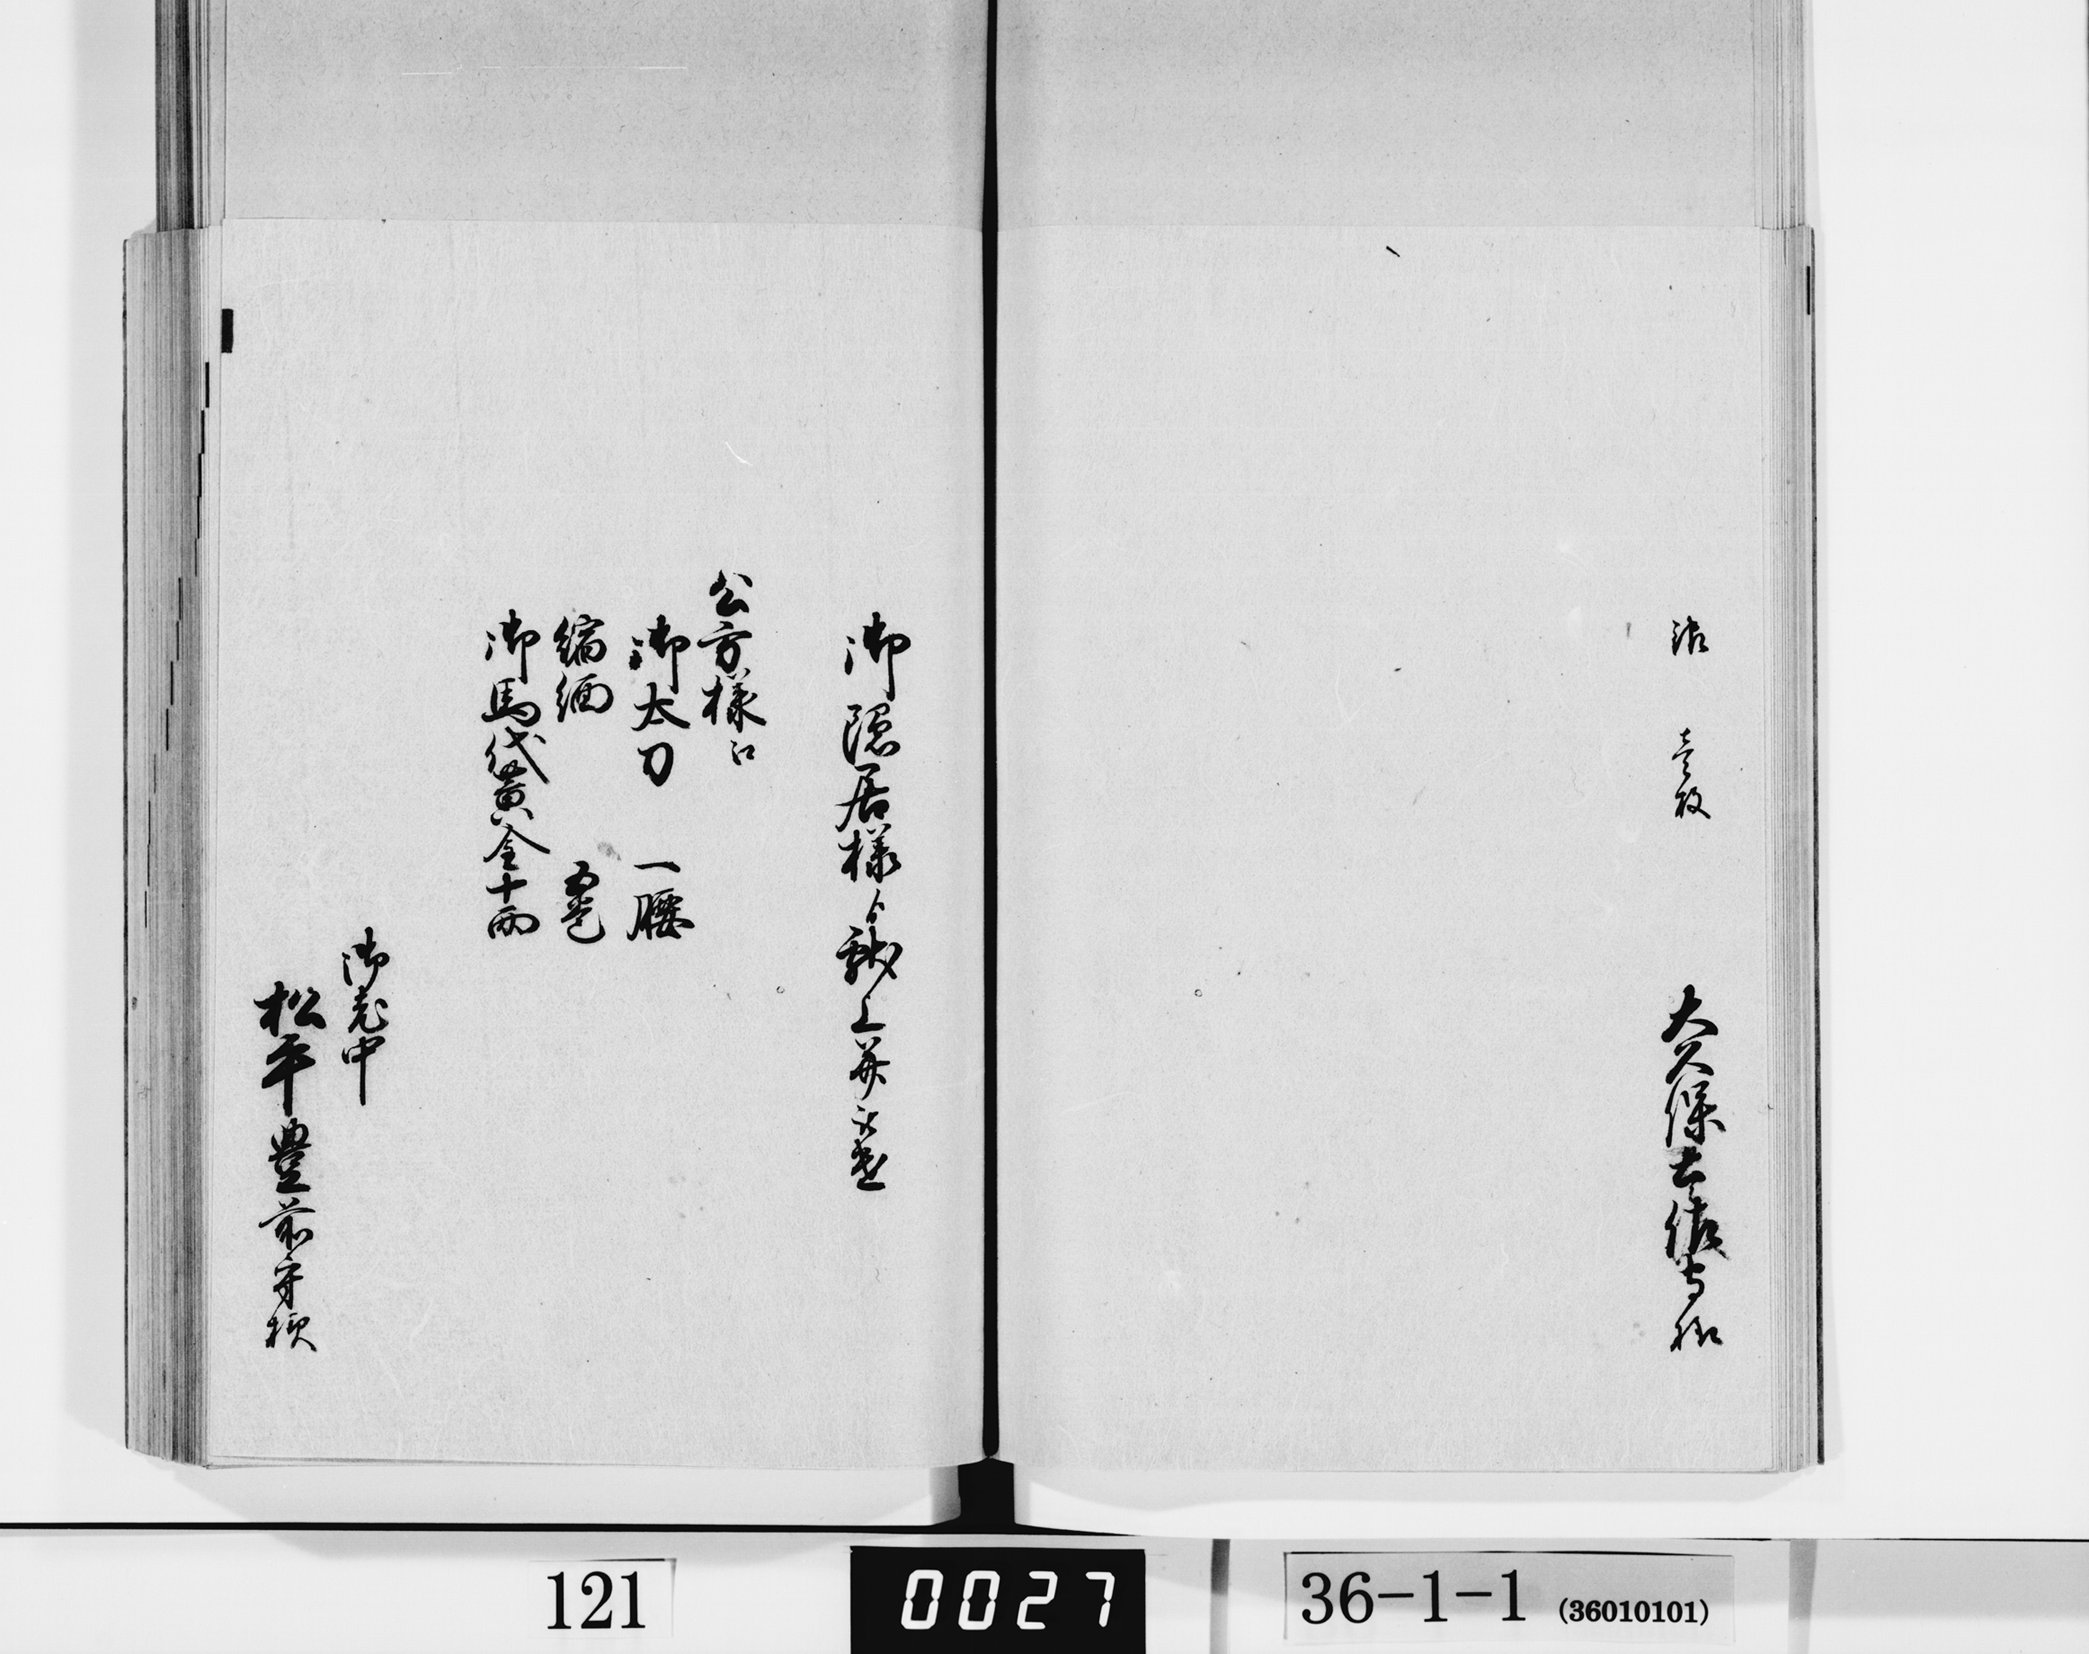 銀　壱枚
大久保土佐守様
御隠居様ゟ献上并被遣
公方様江
御太刀　一腰
縮緬　五巻
御馬代黄金十両
御老中
松平豊前守様
121
0027
36-1-1 (36010101)